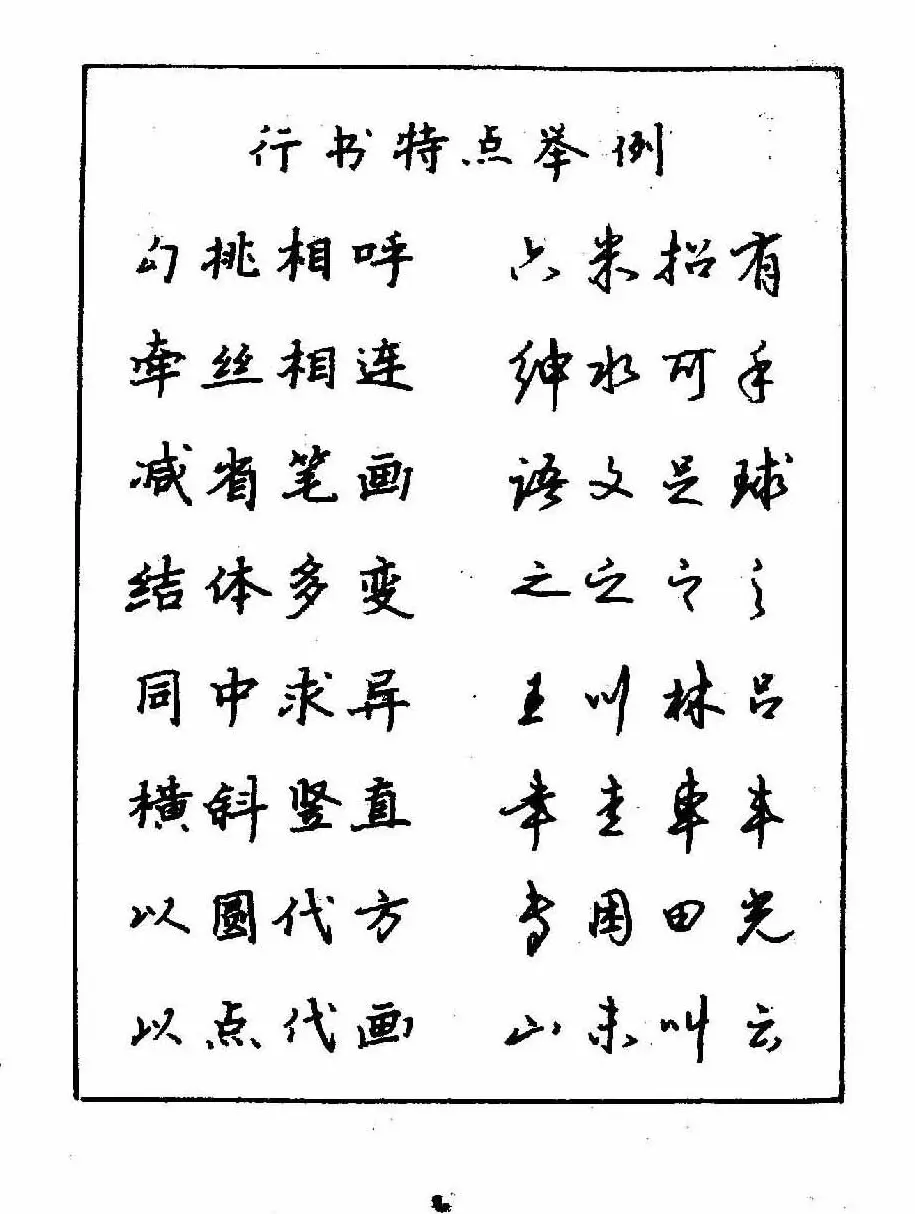 行书特点举例
勾挑相呼 六米招有
牵丝相连 绅水可手
减省笔画 语文足球
结体多变 之之之之
同中求异 王川林吕
横斜竖直 幸圭車丰
以圆代方 困田光
以点代画 山未叫云